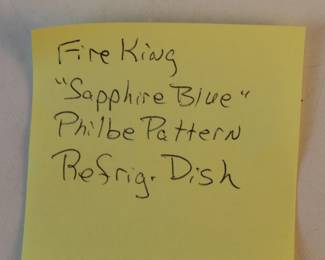 Fire King
"Sapphire Blue"
Philbe Pattern
Refrig. Dish